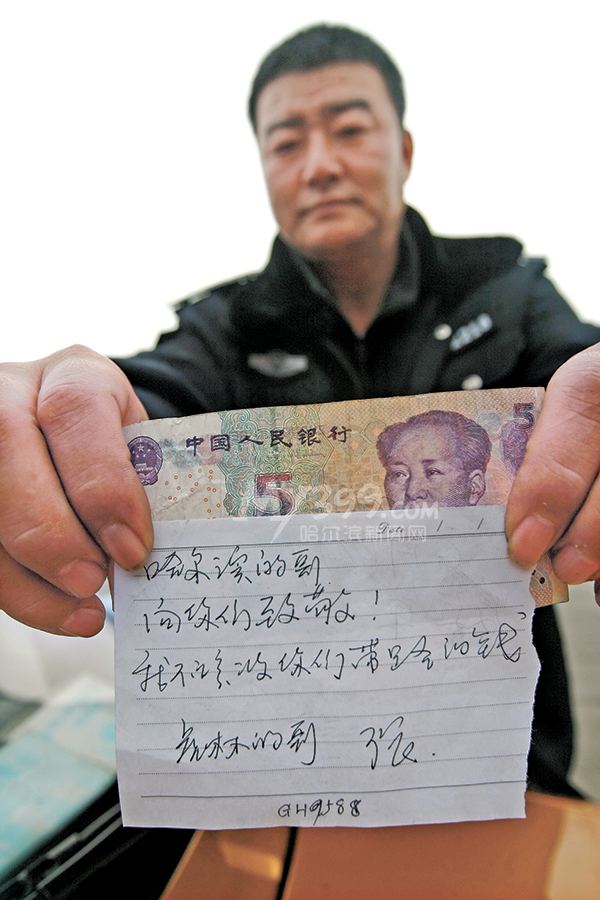 中国人民银行
5
5
my399.com
哈尔滨新闻网
Date / /
哈尔滨的到
向你们致敬！
我不该收你们带路的钱
吉林的到 张.